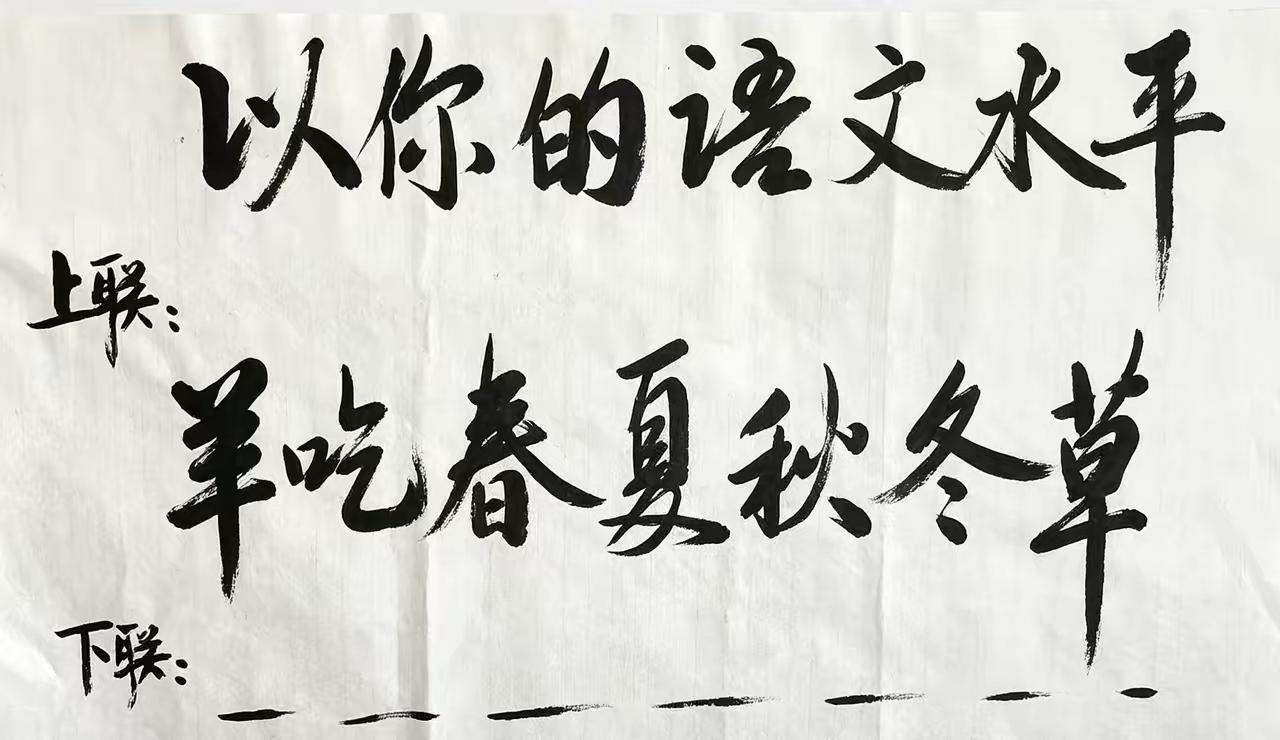 以你的语文水平
上联：
羊吃春夏秋冬草
下联：